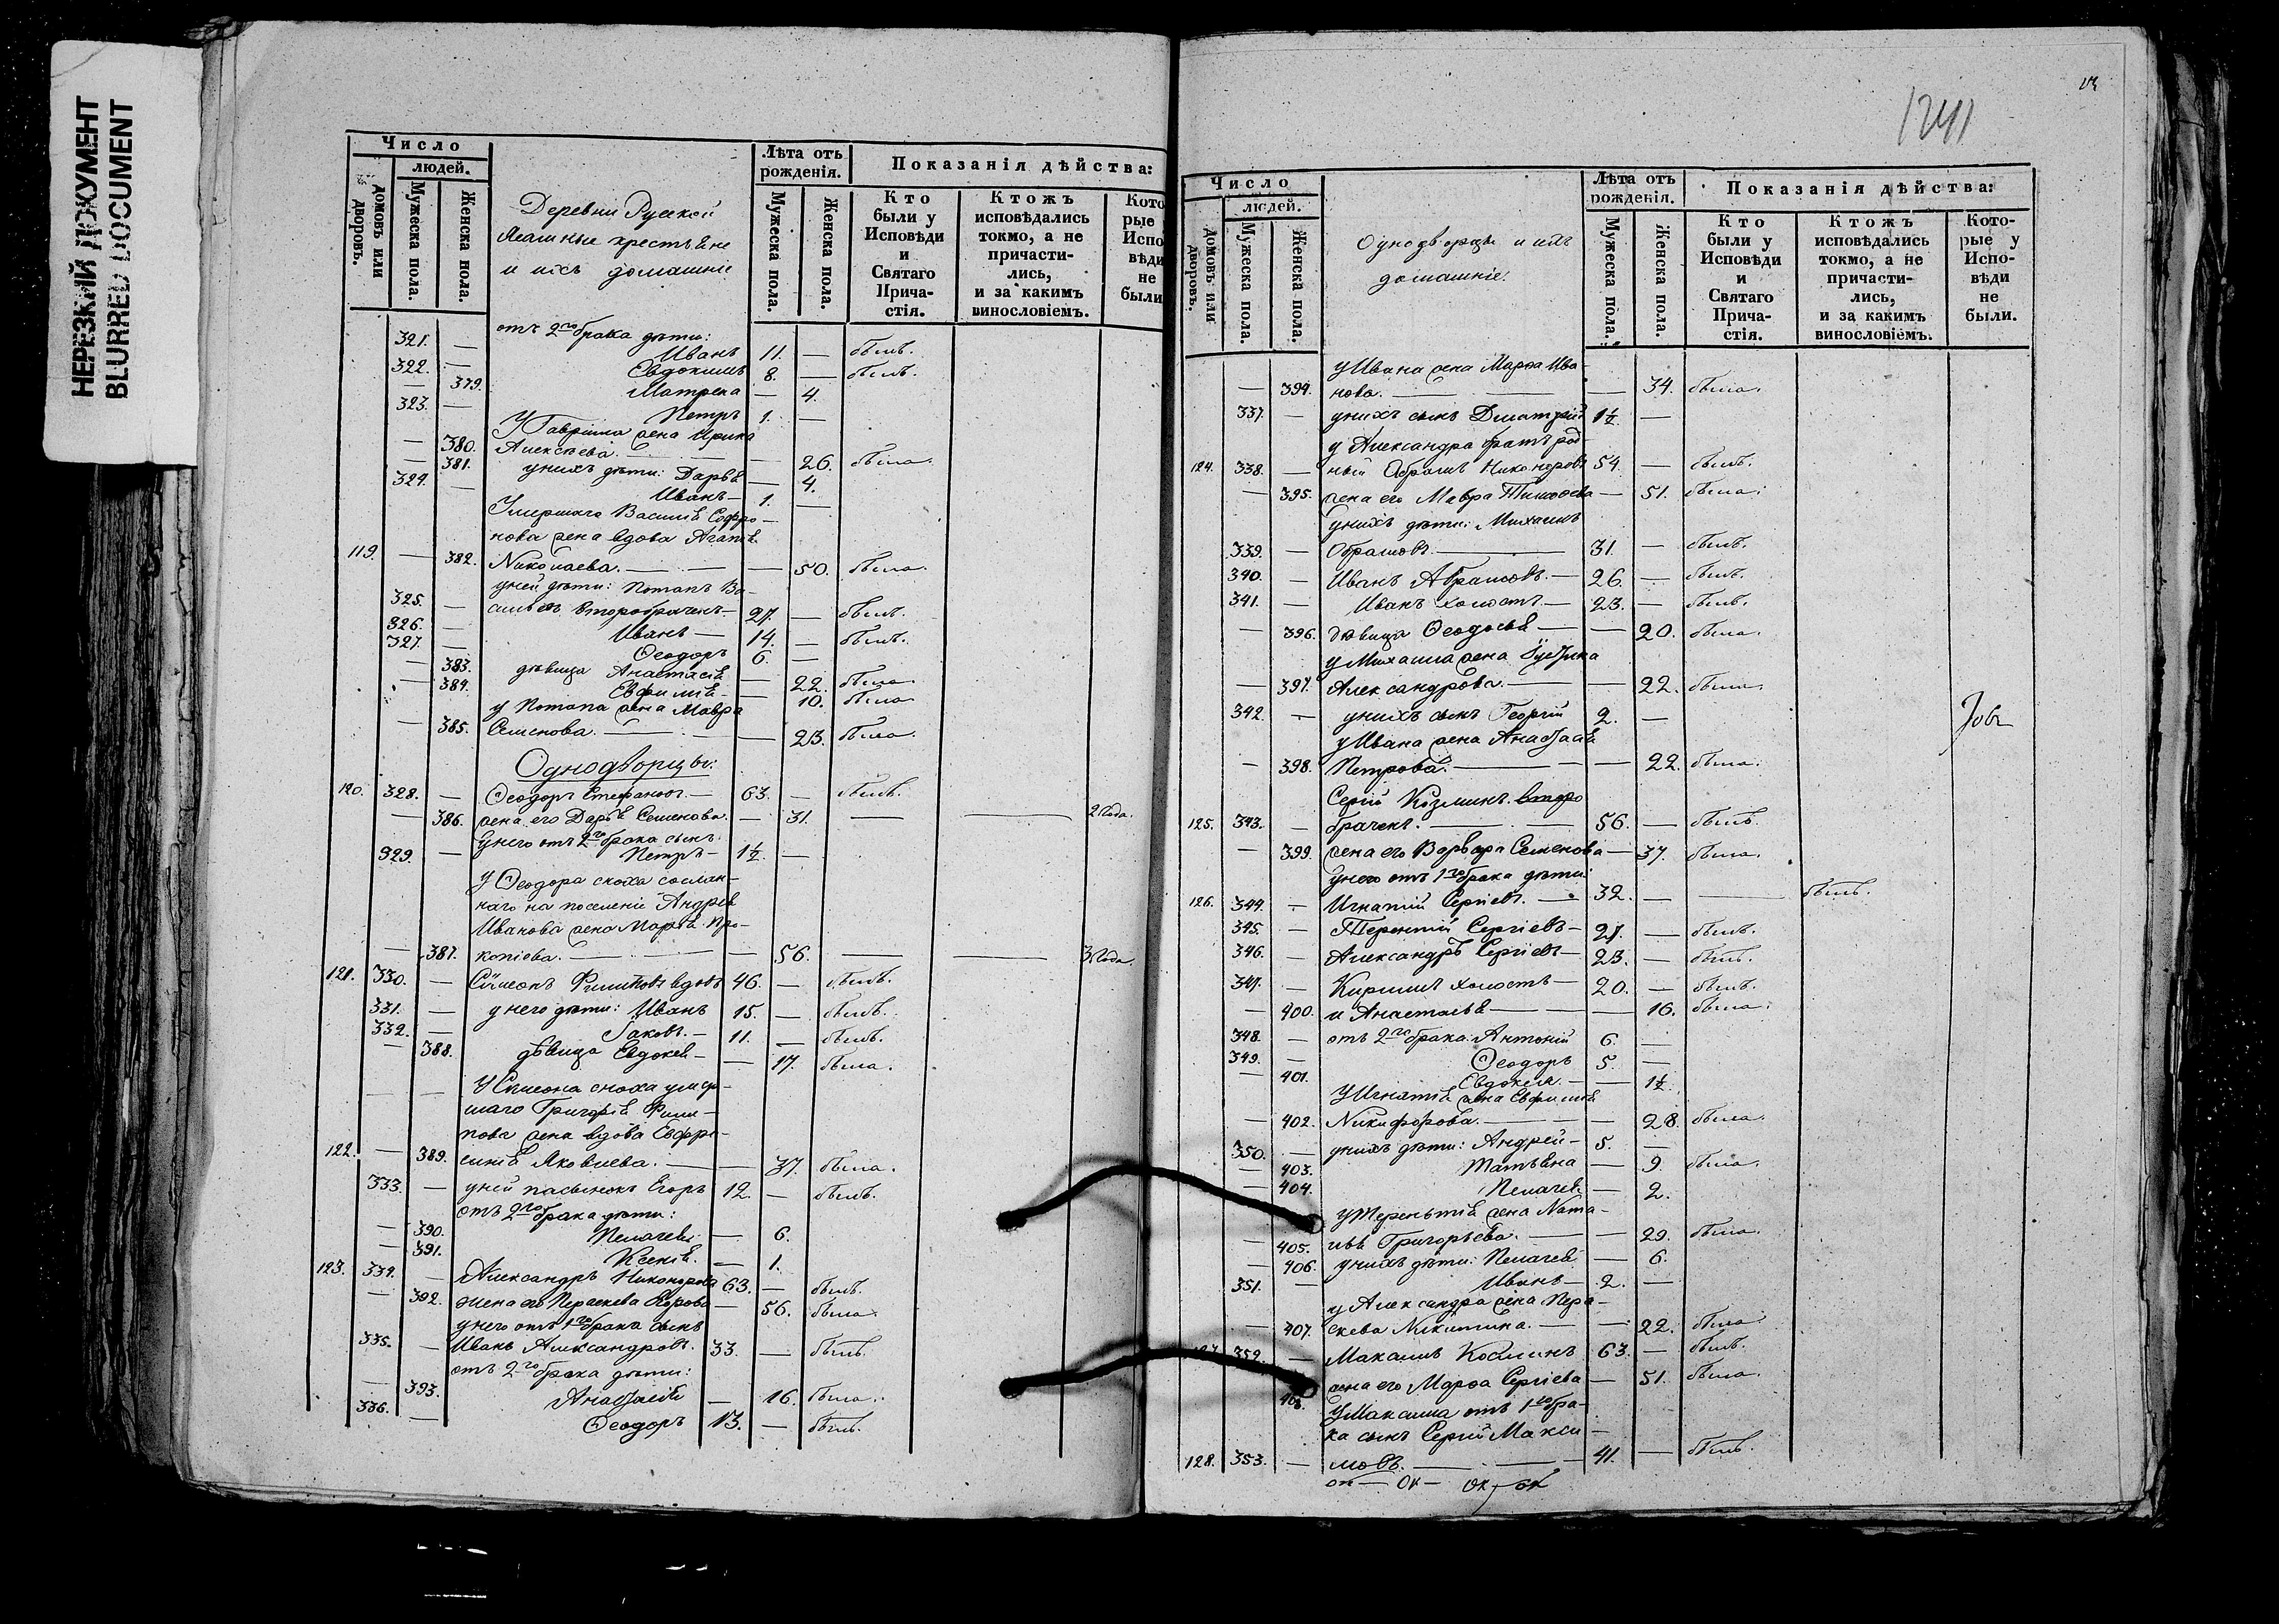 НЕРЕЗКИЙ ДОКУМЕНТ
BLURRED DOCUMENT
Число
людей.
домовъ или дворовъ.
Мужеска пола.
Женска пола.
Деревни Русской
Ясашные крестьяне
и ихъ домашніе
Лѣта отъ рожденія.
Мужеска пола.
Женска пола.
Показанія дѣйства:
Кто были у Исповѣди и Святаго Прича-стія.
Ктожъ исповѣдались токмо, а не причасти-лись, и за какимъ винословіемъ.
Кото рые Испо вѣди не были
отъ 2го брака дѣти:
321. — Иванъ 11. — былъ.
322. — Евдокимъ 8. — былъ.
— 379. Матрена — 4.
323. — Петръ 1. —
У Гавріила жена Ирина
— 380. Алексѣева. — 26. была.
— 381. у нихъ дѣти: Дарья — 4.
324. — Иванъ — 1. —
Умершаго Василія Софро-
нова жена вдова Агапія
119. — 382. Николаева. — 50. была.
у ней дѣти: Потапъ Ва-
325. — сильевъ второбраченъ — 27. — былъ.
326. — Иванъ — 14. — былъ.
327. — Ѳеодоръ 6. —
— 383. дѣвица Анастасія — 22. была.
— 384. Евфимія — 10. была
у Потапа жена Мавра
— 385. Семенова. — 23. была.
Однодворцы:
120. 328. — Ѳеодоръ Стефановъ — 63. — былъ.
— 386. жена его Дарья Семенова. — 31. — — 2 года.
у него отъ 2го брака сынъ
329. — Петръ — 1½. —
У Ѳеодора сноха сослан-
наго на поселеніе Андрея
Иванова жена Марѳа Про-
— 387. копіева. — 56. — — 3 года.
121. 330. — Симеонъ Филиповъ вдовъ 46. — былъ.
331. — у него дѣти: Иванъ 15. — былъ.
332. — Іаковъ. — 11. — былъ.
— 388. дѣвица Евдокея — 17. была.
У Симеона сноха умер-
шаго Григорія Фили-
пова жена вдова Евфро-
122. — 389. синія Яковлева. — 37. была.
333. — у ней пасынокъ Егоръ 12. — былъ.
отъ 2го брака дѣти:
— 390. Пелагея — 6.
— 391. Ксенія. — 1.
123. 334. — Александръ Никоноровъ 63. — былъ.
— 392. жена его Параскева Егорова — 56. была.
у него отъ 1го брака сынъ
335. — Иванъ Александровъ. 33. — былъ.
отъ 2го брака дѣти:
— 393. Анастасія — 16. была.
336. — Ѳеодоръ 13. — былъ.
1241
Число
людей.
домовъ или дворовъ.
Мужеска пола.
Женска пола.
Однодворцы и ихъ
домашніе.
Лѣта отъ рожденія.
Мужеска пола.
Женска пола.
Показанія дѣйства:
Кто были у Исповѣди и Святаго Прича-стія.
Ктожъ исповѣдались токмо, а не причасти-лись, и за какимъ винословіемъ.
Кото-рые у Испо-вѣди не были.
у Ивана жена Марѳа Ива-
— 394. нова. — 34. была.
337. — у нихъ сынъ Дмитрій 1½. —
у Александра братъ род-
124. 338. — ный Абрамъ Никоноровъ 54. — былъ.
— 395. жена его Мавра Тимоѳеева — 51. была.
у нихъ дѣти: Михаилъ
339. — Абрамовъ. — 31. — былъ.
340. — Иванъ Абрамовъ. — 26. — былъ.
341. — Иванъ холостъ — 23. — былъ.
— 396. дѣвица Ѳеодосья — 20. была.
у Михаила жена
— 397. Александрова. — 22. была.
342. — у нихъ сынъ Георгій 2. —
у Ивана жена Анастасія
— 398. Петрова. — 22. была.
Сергій Козминъ второ
125. 343. — браченъ. — 56. — былъ.
— 399. жена его Варвара Семенова — 37. была.
у него отъ 1го брака дѣти:
126. 344. — Игнатій Сергіевъ. — 32. — — былъ.
345. — Терентій Сергіевъ — 27. — былъ.
346. — Александръ Сергіевъ — 23. — былъ.
347. — Кирилъ холостъ — 20. — былъ.
— 400. и Анастасья — 16. была.
348. — отъ 2го брака: Антоній 6. —
349. — Ѳеодоръ 5. —
— 401. Евдокея. — 1½.
У Игнатія жена Евфимія
— 402. Никифорова. — 28. была.
350. — у нихъ дѣти: Андрей — 5. —
— 403. Татьяна — 9. была.
— 404. Пелагея — 2.
у Терентія жена Ната-
— 405. лья Григорьева. — 29. была.
— 406. у нихъ дѣти: Пелагея — 6.
351. — Иванъ — 2. —
у Александра жена Пара-
— 407. скева Никитина. — 22. была
352. — Максимъ Космлинъ 63. — былъ.
408. жена его Марѳа Сергіева — 51. была.
У Максима отъ 1го бра-
ка сынъ Сергій Макси-
128. 353. — мовъ. — 41. — былъ.